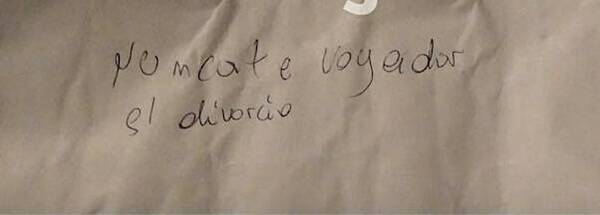 Nuncate voyador
el divorcio